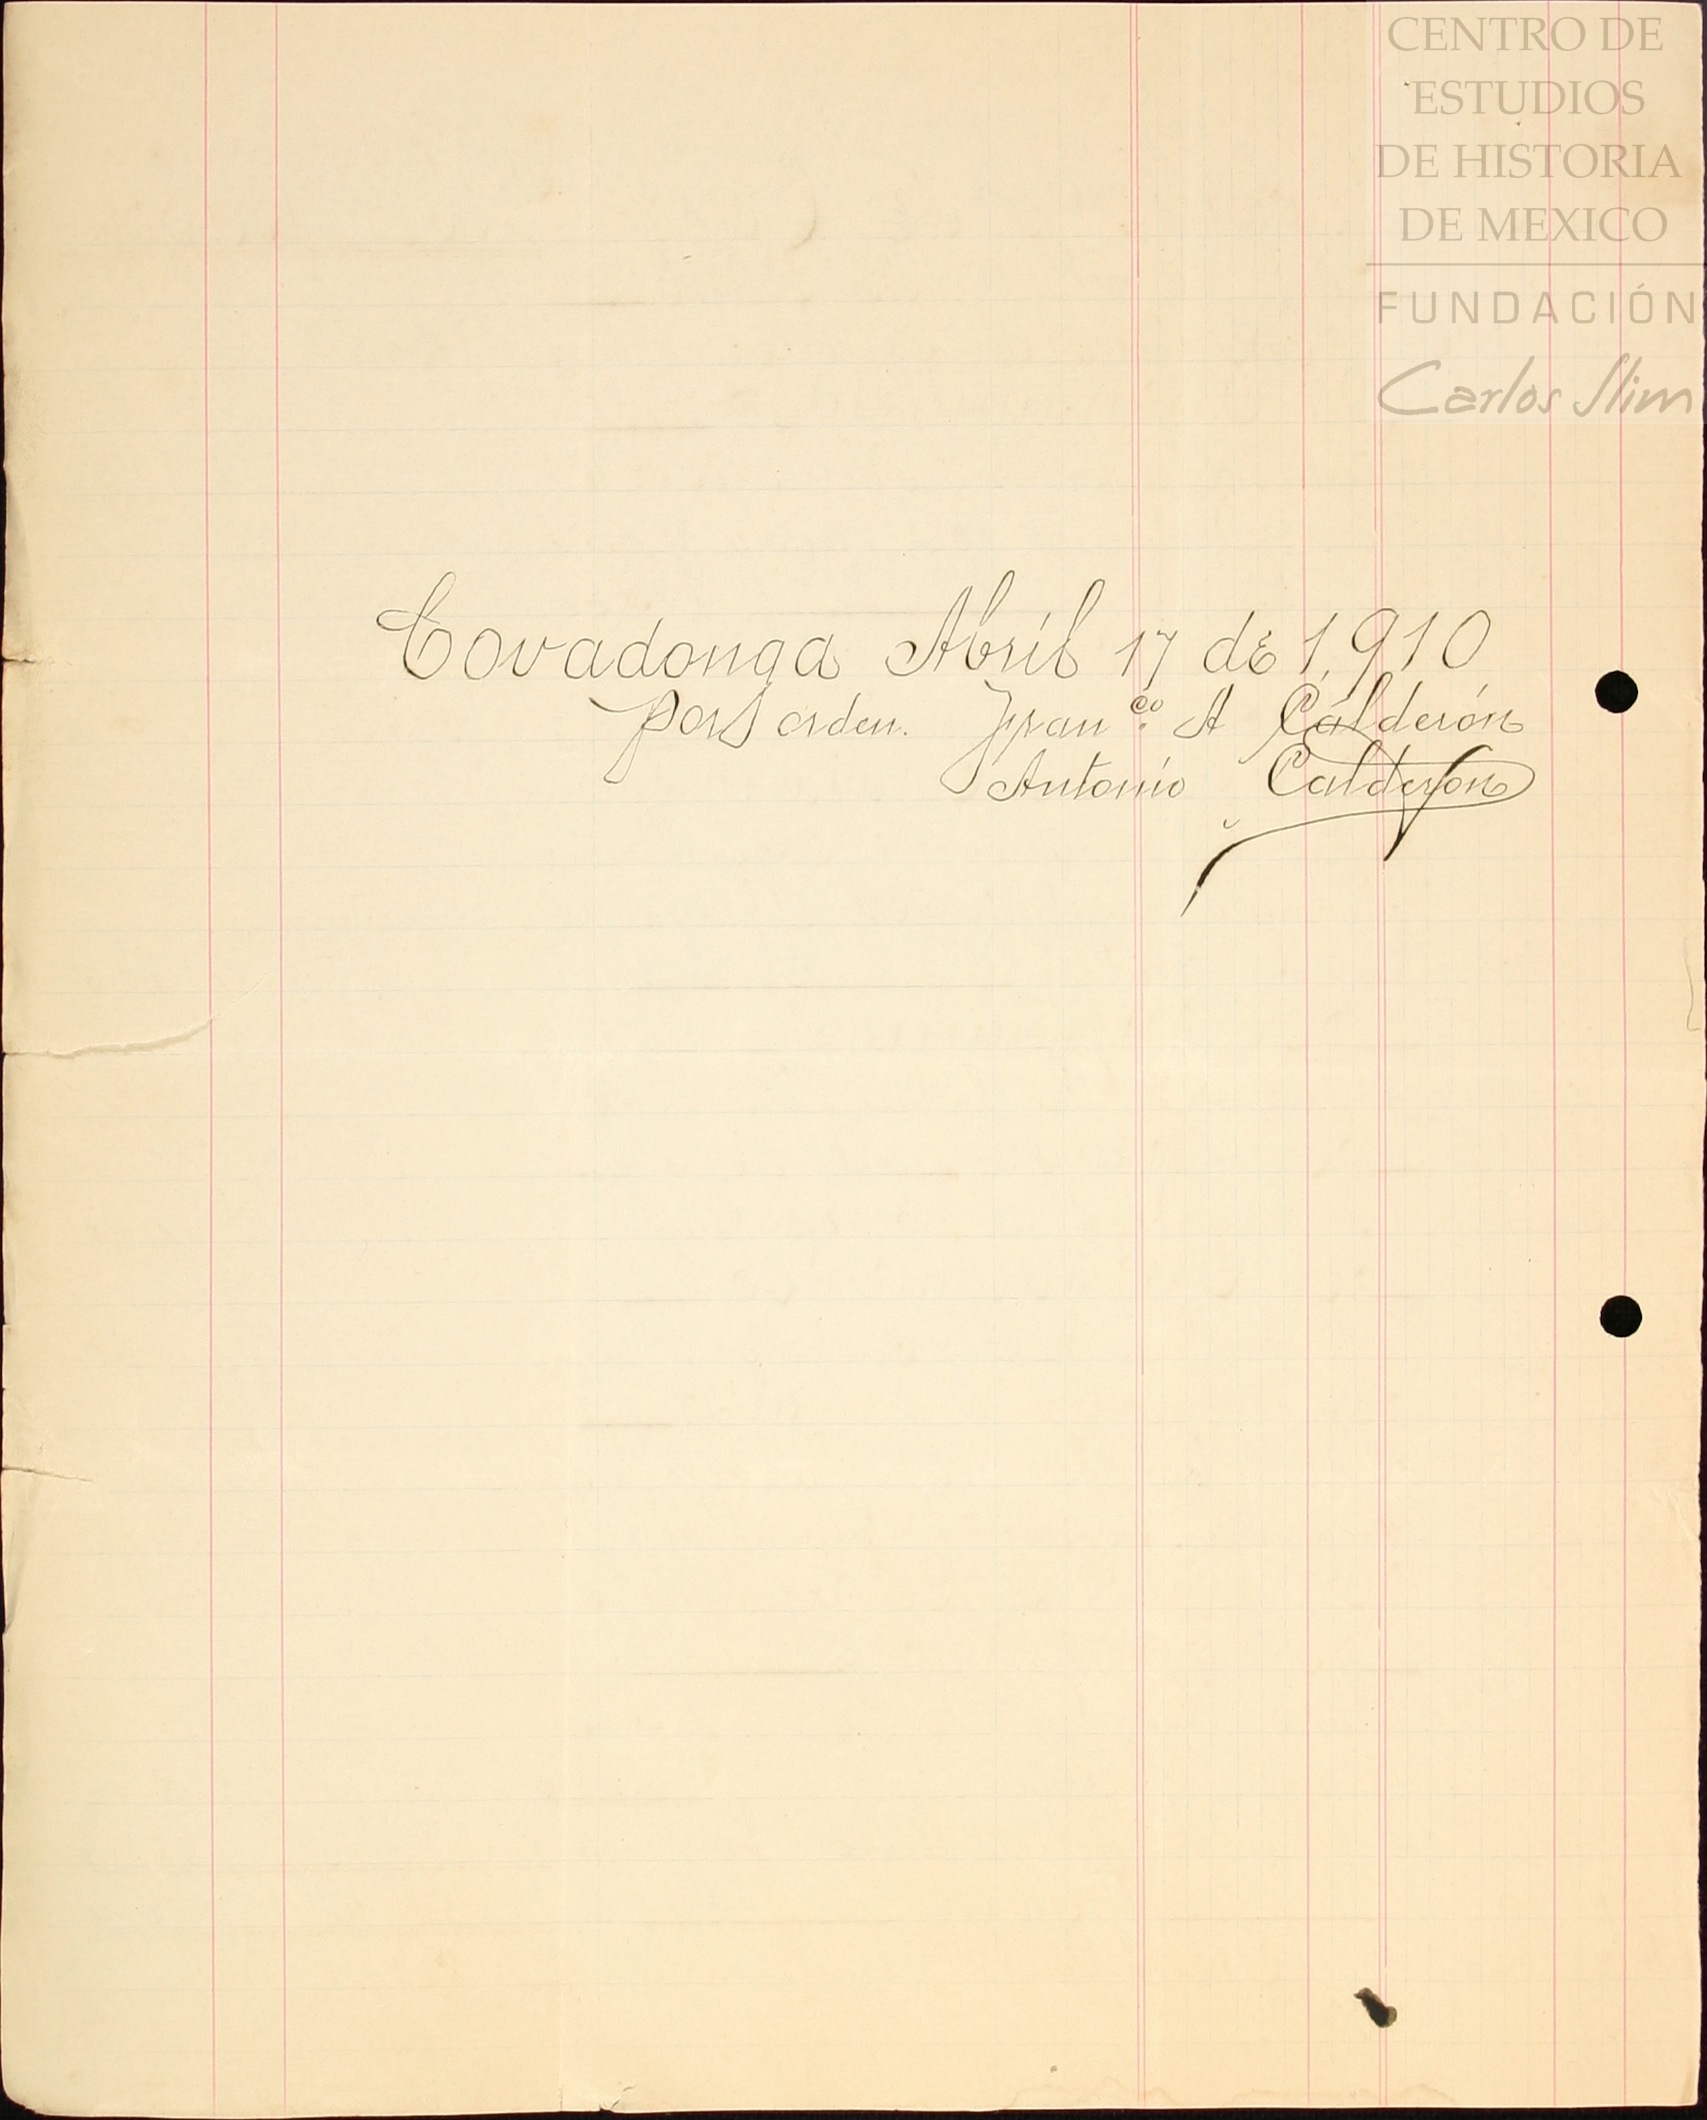 CENTRO DE
ESTUDIOS
DE HISTORIA
DE MEXICO
FUNDACIÓN
Carlos Slim
Covadonga Abril 17 de 1,910
por orden. Fran.co A Calderón
Antonio Calderon